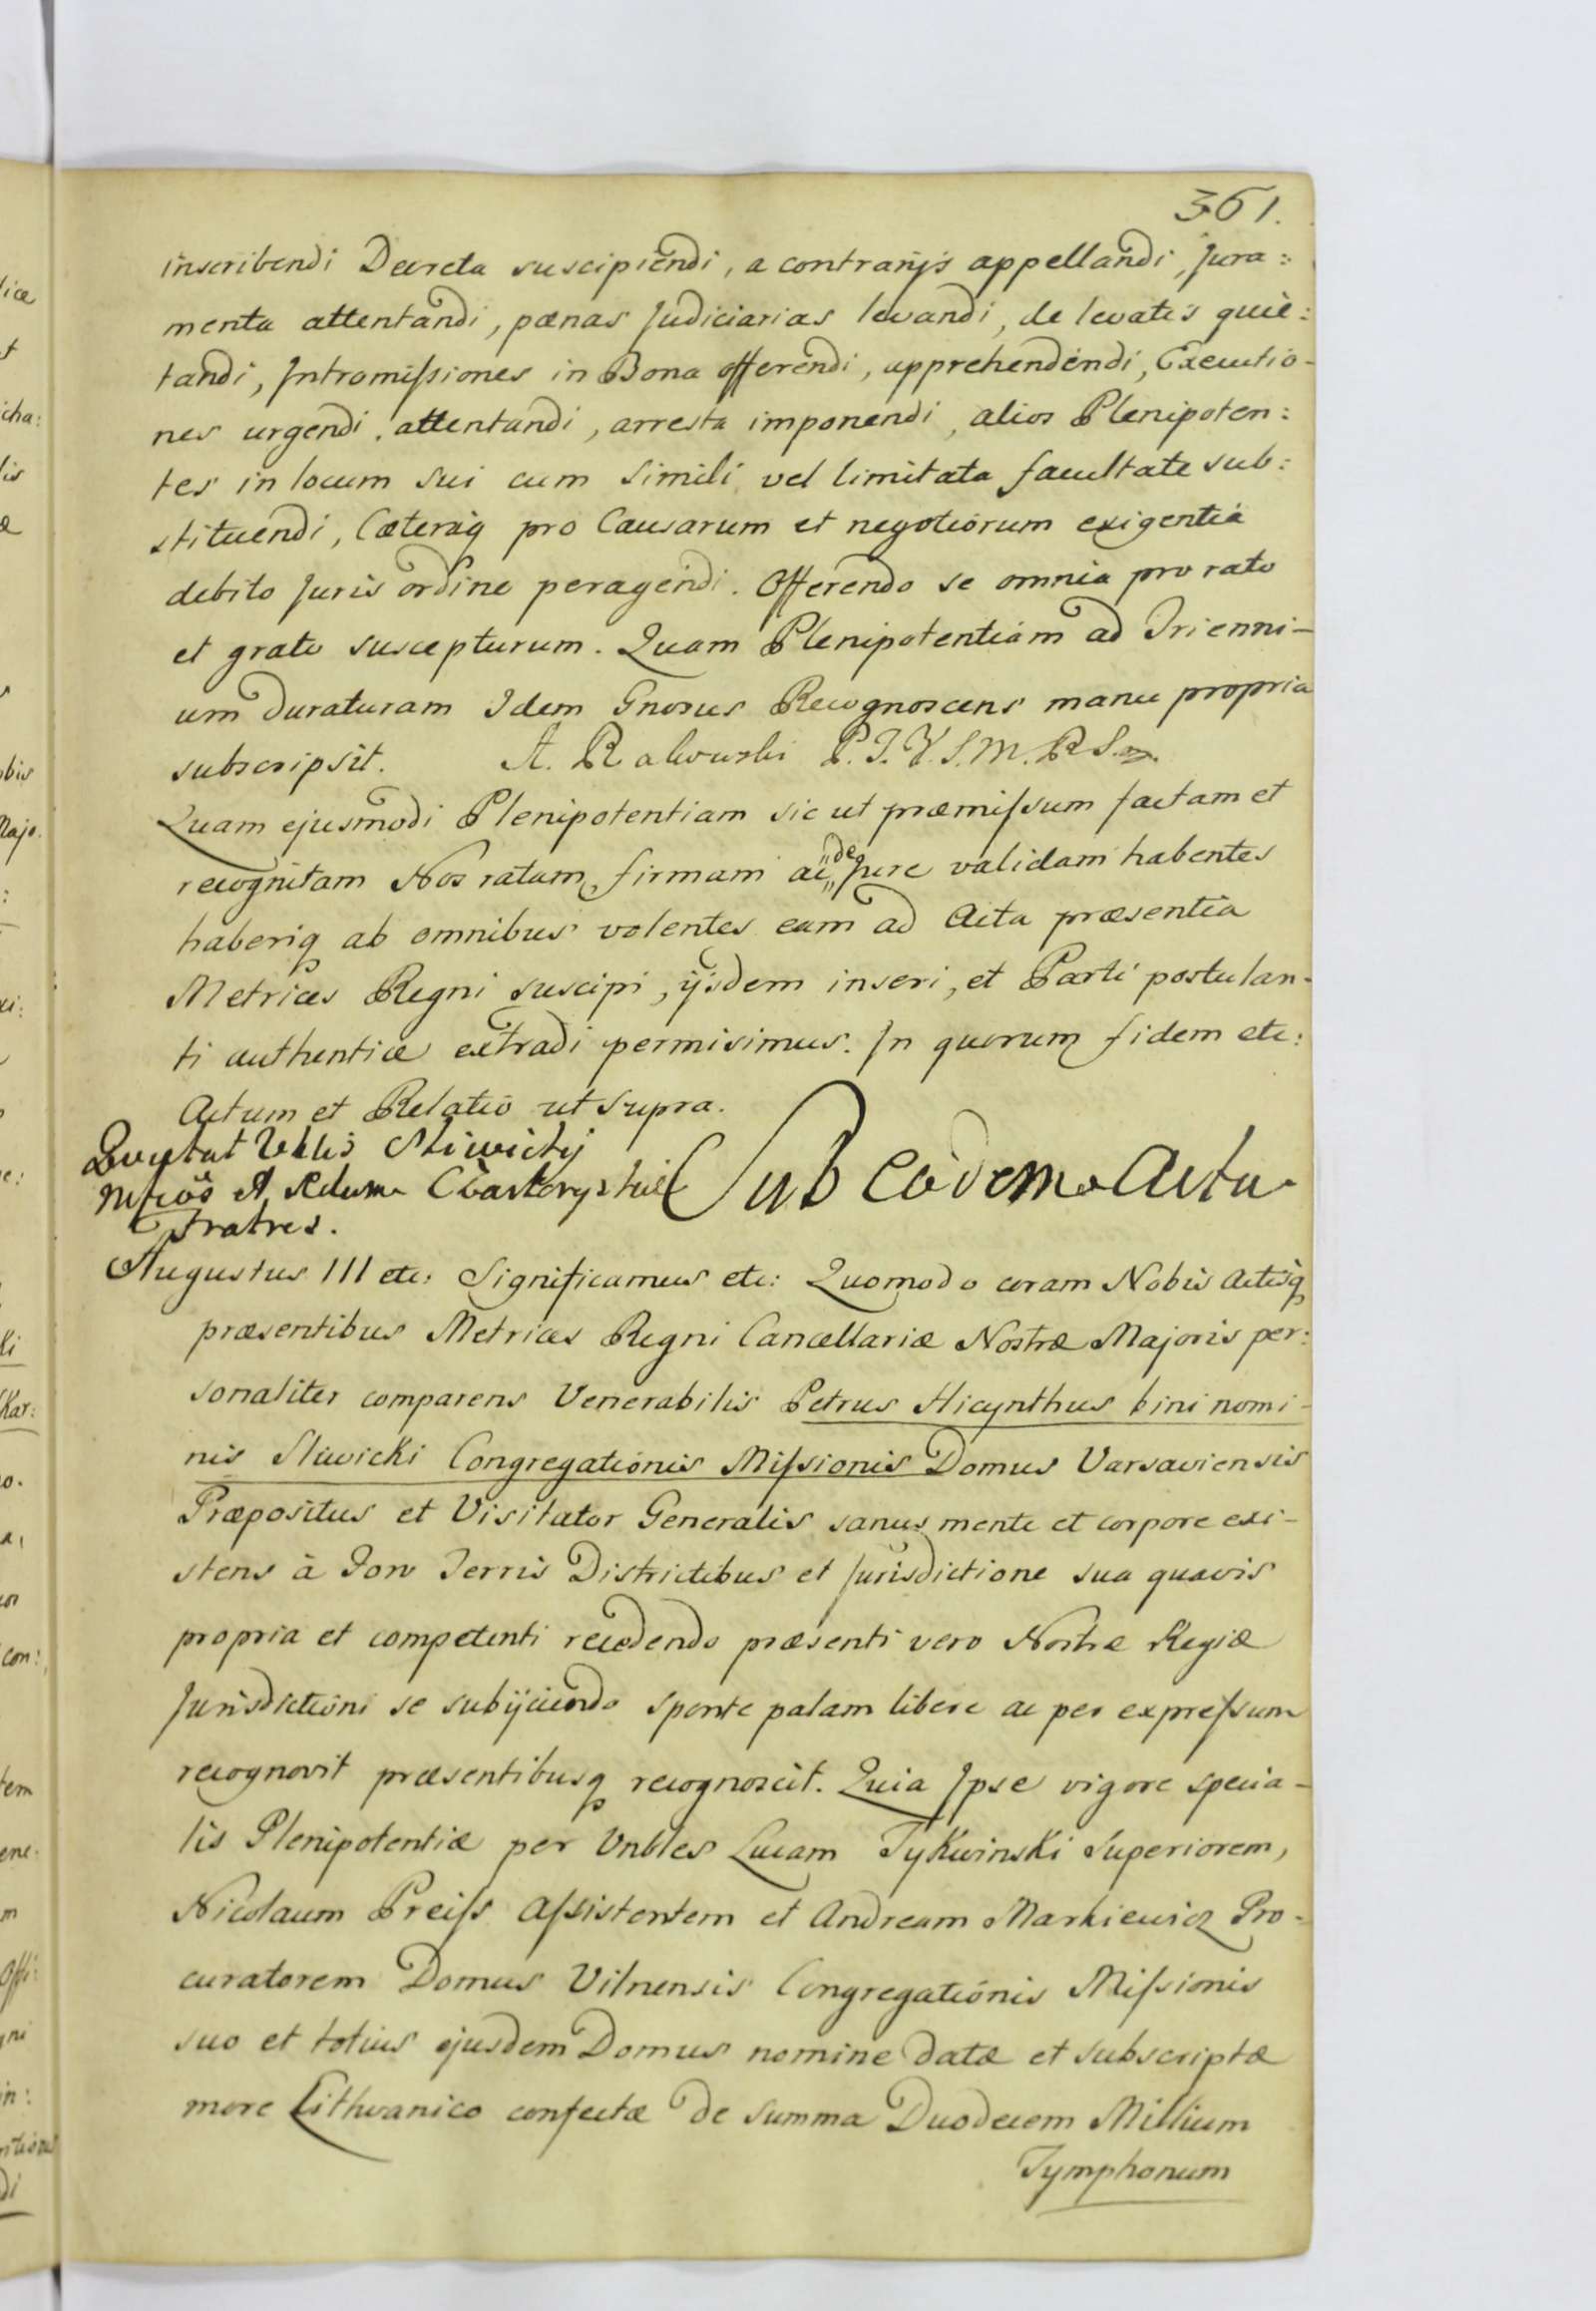 361.
inscribendi Decreta suscipiendi, a contrarijs appellandi, Jura:
menta attentandi, pœnas Judiciarias levandi, de levatis quie:
tandi, Intromiſsiones in Bona offerendi, apprehendendi, Executio-
nes urgendi, attentandi, arresta imponendi, alios Plenipoten:
tes in locum sui cum simili vel limitata facultate sub:
stituendi, Cæteraq pro Causarum et negotiorum exigentia
debito Juris ordine peragendi. Offerendo se omnia pro rato
et grato suscepturum. Quam Plenipotentiam ad Trienni-
um duraturam Idem Gnosus Recognoscens manu propria
subscripsit. A. Rakowski P.J.K.S.M.R.S.
Quam ejusmodi Plenipotentiam sic ut præmiſsum factam et
recognitam Nos ratam, firmam ac de jure validam habentes
haberiq ab omnibus volentes eam ad Acta præsentia
Metrices Regni suscipi, ijsdem inseri, et Parti postulan-
ti authentice extradi permisimus. In quorum fidem etc:
Actum et Relatio ut supra.
Quietat Vblis Sliwicky
Mficos A. Adum Czartoryskie
Fratres.
Sub eodem Actu
Augustus III etc: Significamus etc: Quomodo coram Nobis Actisq
præsentibus Metrices Regni Cancellariæ Nostræ Majoris per:
sonaliter comparens Venerabilis Petrus Hicynthus bini nomi-
nis Sliwicki Congregationis Miſsionis Domus Varsaviensis
Præpositus et Visitator Generalis sanus mente et corpore exi-
stens à Foro Terris Districtibus et Jurisdictione sua quavis
propria et competenti recedendo præsenti vero Nostræ Regiæ
Jurisdictioni se subijciendo sponte palam libere ac per expreſsum
recognovit præsentibusq recognoscit. Quia Ipse vigore specia-
lis Plenipotentiæ per Vnbles Lucam Tykwinski Superiorem,
Nicolaum Preiſs Aſsistentem et Andream Markiewicz Pro-
curatorem Domus Vilnensis Congregationis Miſsionis
suo et totius ejusdem Domus nomine datæ et subscriptæ
more Lithvanico confectæ de summa Duodecem Millium
Tymphonum